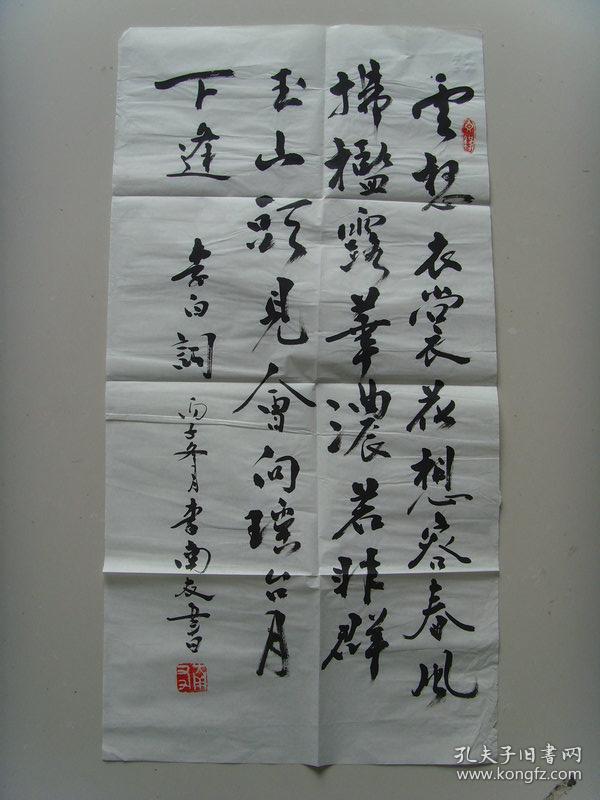 雲想衣裳花想容春風
拂檻露華濃若非群
玉山頭見會向瑤台月
下逢
李白詞
丙子年冬月李南友書
孔夫子旧书网
www.kongfz.com